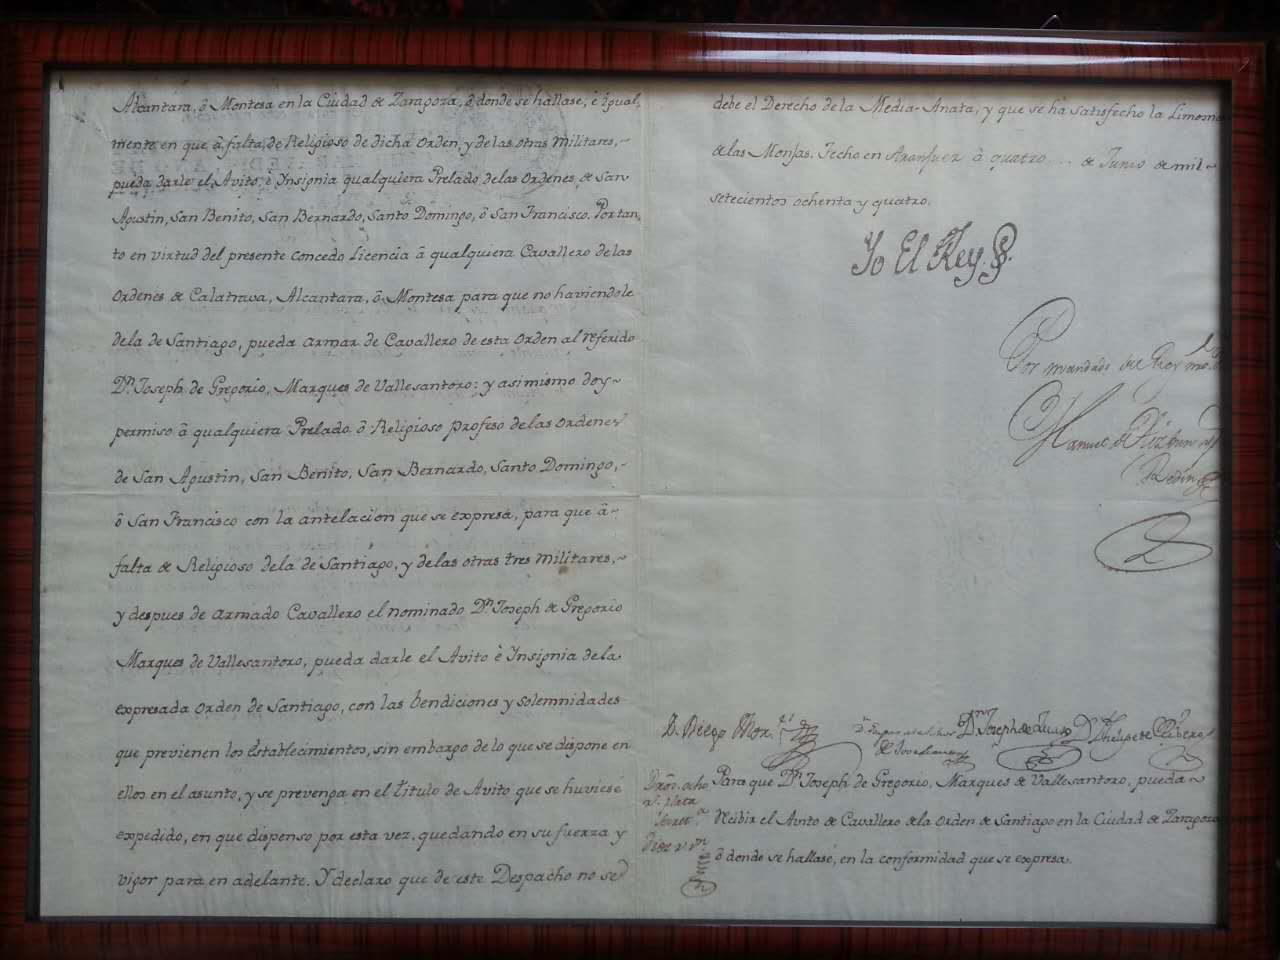 Alcantara, ò Montesa en la Ciudad de Zaragoza, ò donde se hallase, è igual,
mente en que â falta de Religioso de dicha Orden, y de las otras Militares,
pueda darle el Avito, è Insignia qualquiera Prelado de las Ordenes de San
Agustin, San Benito, San Bernardo, Santo Domingo, ô San Francisco. Por tan,
to en virtud del presente concedo Licencia â qualquiera Cavallero de las
Ordenes de Calatrava, Alcantara, ô Montesa para que no haviendole
de la de Santiago, pueda armar de Cavallero de esta Orden al referido
Dn. Joseph de Gregorio, Marques de Vallesantoro: y asimismo doy
permiso â qualquiera Prelado ô Religioso profeso de las Ordenes
de San Agustin, San Benito, San Bernardo, Santo Domingo,
ô San Francisco con la antelacion que se expresa, para que â
falta de Religioso de la de Santiago, y de las otras tres Militares,
y despues de armado Cavallero el nominado Dn. Joseph de Gregorio
Marques de Vallesantoro, pueda darle el Avito è Ynsignia de la
expresada Orden de Santiago, con las bendiciones y solemnidades
que previenen los Establecimientos, sin embargo de lo que se dispone en
ellos en el asunto, y se prevenga en el titulo de Avito que se huviese
expedido, en que dispenso por esta vez, quedando en su fuerza y
vigor para en adelante. Y declaro que de este Despacho no se
debe el Derecho de la Media-Anata, y que se ha satisfecho la Limosna
de las Monjas. Fecho en Aranjuez â quatro de Junio de mil
setecientos ochenta y quatro.
Yo El Rey
Por mandado del Rey nro.
Manuel de Aizpun y
Redin
D. Diego
Dn. Joseph de Dn. Phelipe de Ribero
Para que Dn. Joseph de Gregorio, Marques de Vallesantoro, pueda
Recibir el Avito de Cavallero de la Orden de Santiago en la Ciudad de Zaragoza
ô donde se hallase, en la conformidad que se expresa.